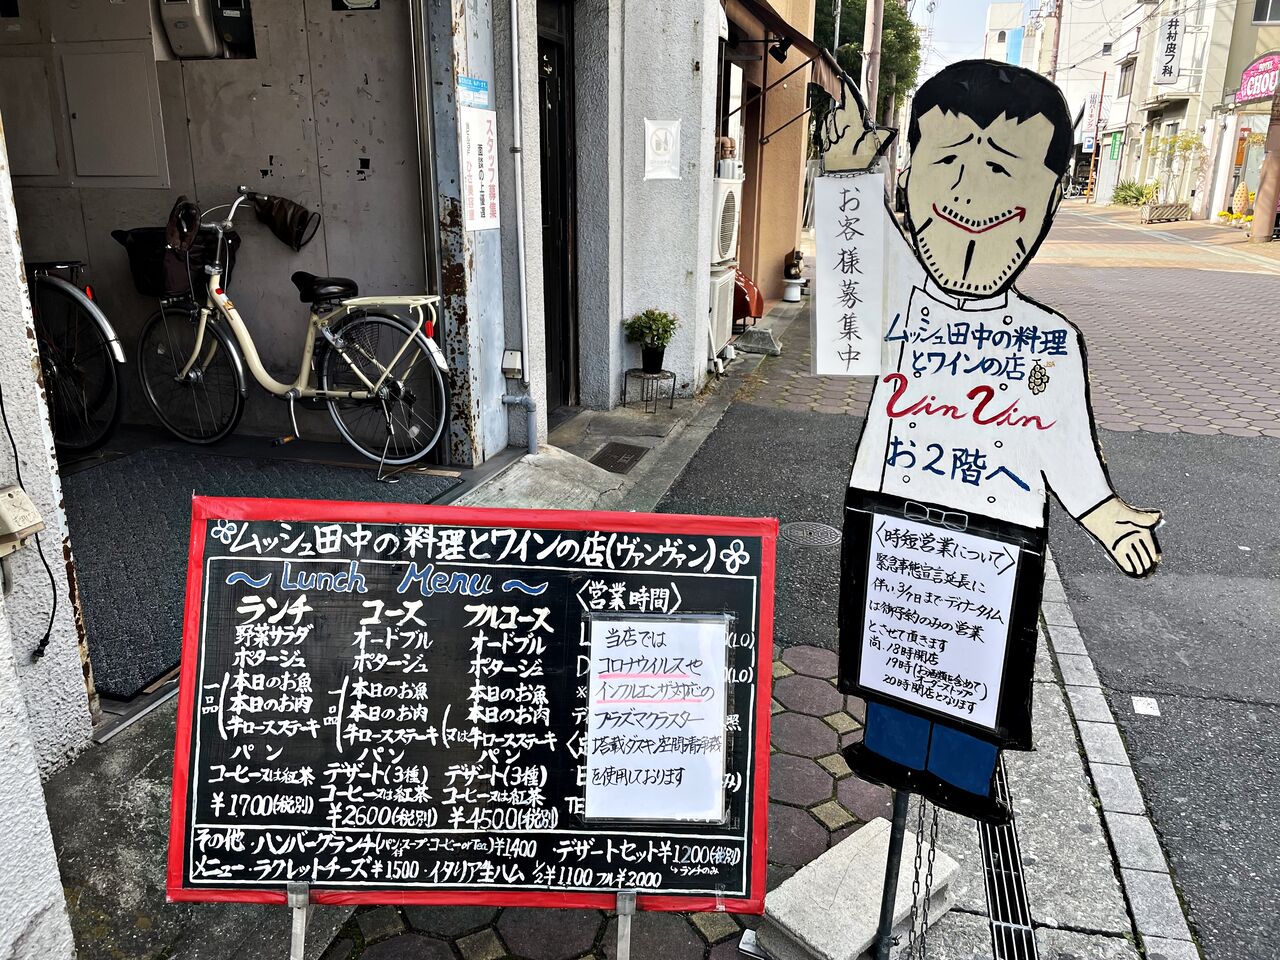 ムッシュ田中の料理とワインの店(ヴァンヴァン)
~Lunch Menu~
ランチ
野菜サラダ
ポタージュ
一品
本日のお魚
本日のお肉
牛ロースステーキ
パン
コーヒー又は紅茶
¥1700(税別)
コース
オードブル
ポタージュ
一品
本日のお魚
本日のお肉
牛ロースステーキ
パン
デザート(3種)
コーヒー又は紅茶
¥2600(税別)
フルコース
オードブル
ポタージュ
本日のお魚
本日のお肉
又は牛ロースステーキ
パン
デザート(3種)
コーヒー又は紅茶
¥4500(税別)
〈営業時間〉
当店では
コロナウイルスや
インフルエンザ対応の
プラズマクラスター
搭載ダスキン空間清浄機
を使用しております
その他・ハンバーグランチ(パン・スープ・コーヒーor Tea付)¥1400・デザートセット¥1200(税別)
メニュー・ラクレットチーズ¥1500・イタリア生ハム 1/2¥1100 フル¥2000
↳ランチのみ
お客様募集中
ムッシュ田中の料理
とワインの店
Vin Vin
お2階へ
〈時短営業について〉
緊急事態宣言延長に
伴い3/7日までディナータイム
は御予約のみの営業
とさせて頂きます
尚、18時開店
19時(お酒類を含めて)
オーダーストップ
20時閉店となります
スタッフ募集
面談の上優遇
井村皮フ科
HOTEL
CHOU